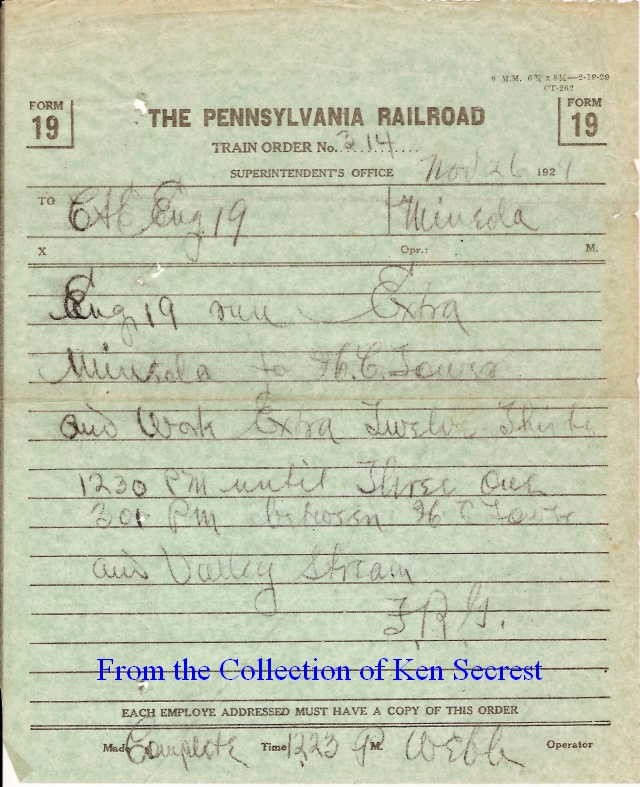 9 M.M. 6¾ x 8¼—2-19-29
CT-262
FORM 19
THE PENNSYLVANIA RAILROAD
FORM 19
TRAIN ORDER No. 314
SUPERINTENDENT'S OFFICE Nov 26 1929
TO C&E Eng 19 Mineola
X Opr.: M.
Eng 19 run Extra
Mineola to H.C. Tower
and Work Extra Twelve Thirty
1230 PM until Three One
301 PM between H C Tower
and Valley Stream
F.R.G.
From the Collection of Ken Secrest
EACH EMPLOYE ADDRESSED MUST HAVE A COPY OF THIS ORDER
Made Complete Time 1223 P M. Webb Operator